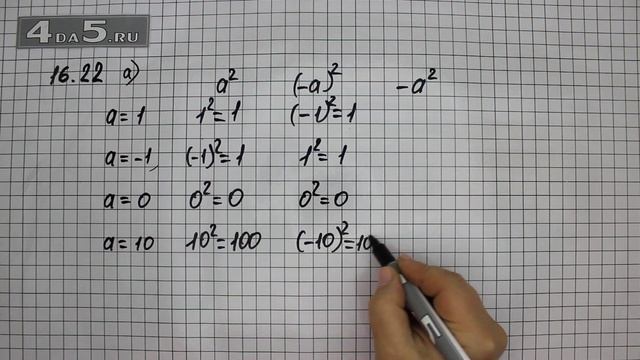 4ДА5.RU
16.22 а) a² (-a)² -a²
a = 1 1² = 1 (-1)² = 1
a = -1, (-1)² = 1 1² = 1
a = 0 0² = 0 0² = 0
a = 10 10² = 100 (-10)² = 10